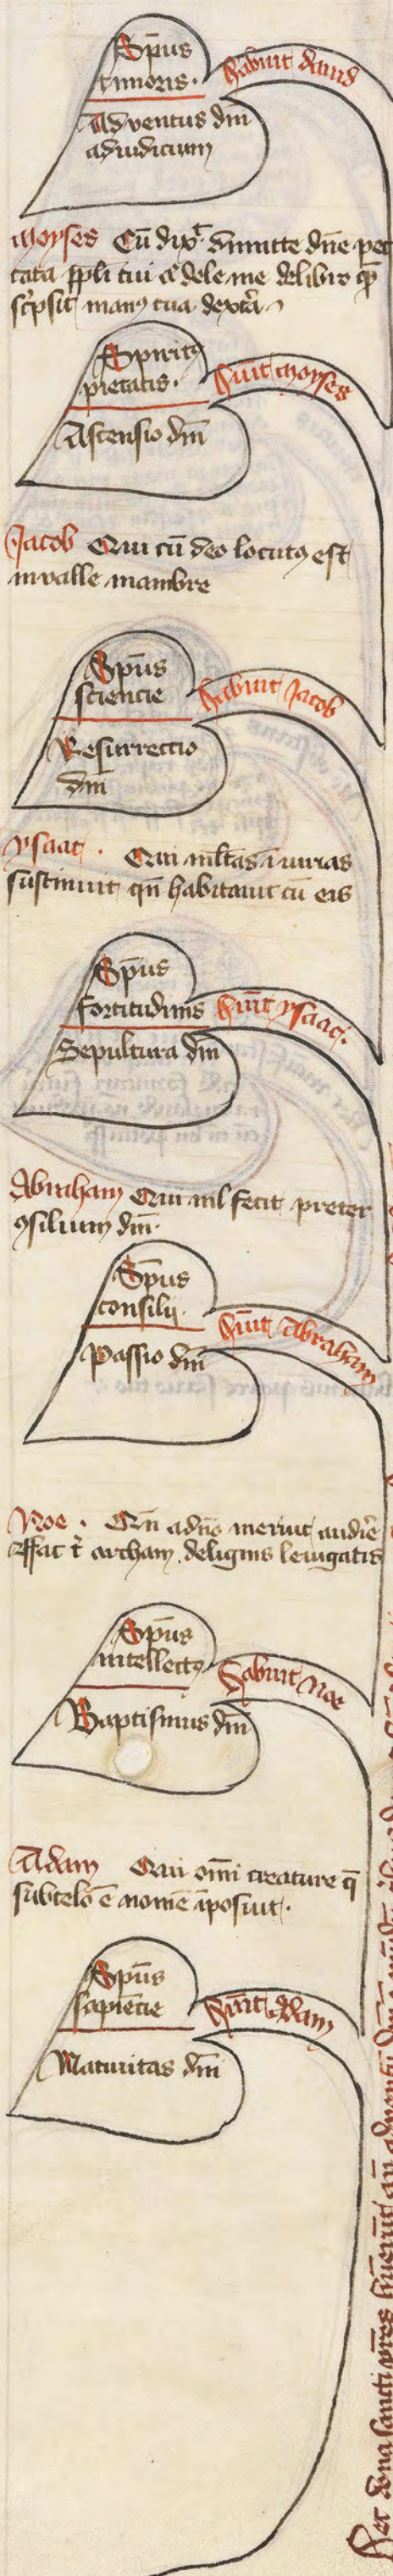 Spūs
timoris·
habuit dauid
Adventus dm̄
adiudicium
Moyses Cū dixᵗ· dimitte dn̄e pec
cata ppli tui ⁊ dele me delibro qͣ̄
scͥpsit manꝰ tua dextͣa
Spiritꝰ
pietatis·
hūit moyses
Ascensio dm̄
Jacob Qui cū deo locutꝰ est
in valle mambre
Spūs
sciencie
habuit Jacob
Resurrectio
dm̄
ysaac · Qui ml̄tas iniurias
sustinuit qn̄ habitauit cū eis
Spūs
fortitudinis
hūit ysaac·
Sepultura dm̄
Abraham Qui nil fecit preter
ꝯsilium dm̄·
Spūs
consilij·
hūit Abraham
Passio dm̄
Noe · Qn̄ adn̄o meruit audiē
archam deliginis leuigatis
Spūs
intellectꝰ
habuit Noe
Baptismus dm̄
Adam Qui om̄i creature q̄
subcelo ē nomē īposuit·
Spūs
sapiēcie
hūit Adam
Natiuitas dm̄
Hec dona sancti pr̄es hūerūt an̄ aduentū dm̄